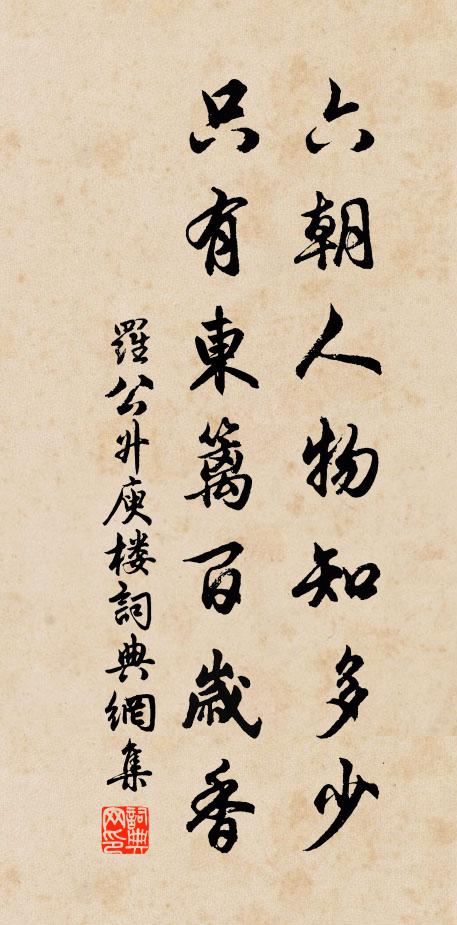 六朝人物知多少
只有東籬百歲香
羅公升庾楼詞典網集
詞典网印